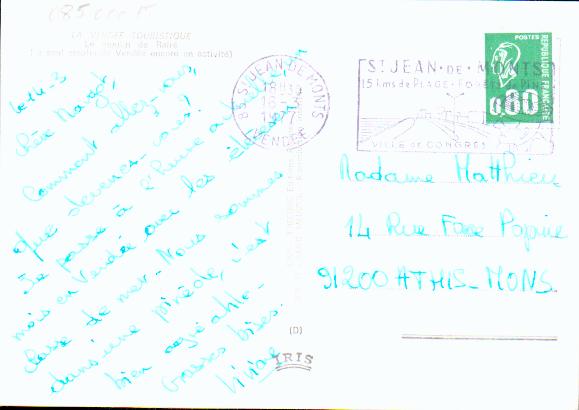 085
LA VENDÉE TOURISTIQUE
Le moulin de Rairé
(Le seul moulin de Vendée encore en activité)
le 14-3
Chère Margot,
Comment allez-vous,
que devenez-vous?
Je passe à l'heure actuelle un
mois en Vendée avec les élèves en
classe de mer. Nous sommes
dans une pinède, c'est
bien agréable.
Grosses bises.
Viviane
85 ST JEAN DE MONTS
18H30
1977
VENDÉE
ST JEAN-DE-MONTS
15 kms de PLAGE - FORÊT
VILLE DE CONGRÈS
POSTES
RÉPUBLIQUE FRANÇAISE
0,80
Madame Matthieu
14 Rue Face Papine
91200 ATHIS-MONS.
(D)
IRIS